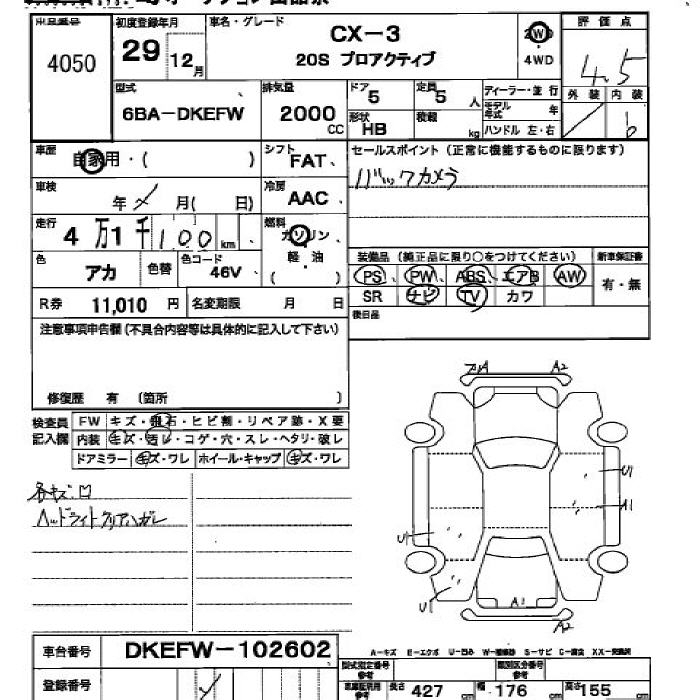 出品番号
4050
初度登録年月
29 12月
車名・グレード
CX-3
20S プロアクティブ
2WD
4WD
評価点
4.5
外装 内装
b
型式
6BA-DKEFW
排気量
2000
CC
ドア
5
定員
5
人
形状
HB
積載
kg
ディーラー・並行
モデル年式 年
ハンドル 左・右
車歴
自家用・( )
シフト
FAT、
セールスポイント(正常に機能するものに限ります)
バックカメラ
車検
年 月( 日)
冷房
AAC、
走行
4万1千100 km、
燃料
ガソリン、
軽・油
( )
色
アカ
色替
色コード
46V、
R券
11,010 円
名変期限 月 日
装備品(純正品に限り○をつけてください)
新車保証書
PS PW ABS エアB AW
有・無
SR ナビ TV カワ
後日品
注意事項申告欄(不具合内容等は具体的に記入して下さい)
修復歴 有(箇所 )
検査員
記入欄
FW キズ・飛石・ヒビ割・リペア跡・X要
内装 キズ・汚レ・コゲ・穴・スレ・ヘタリ・破レ
ドアミラー キズ・ワレ ホイール・キャップ キズ・ワレ
各キズ凹
ヘッドライトクリアハガレ
A2
U1
A1
U1
U1
A1
A2
A-キズ E-エクボ U-凹み W-補修跡 S-サビ C-腐食 XX-交換済
車台番号
DKEFW-102602
登録番号
型式指定番号
参考
類別区分番号
参考
長さ 427 cm
幅 176 cm
高さ 155 cm